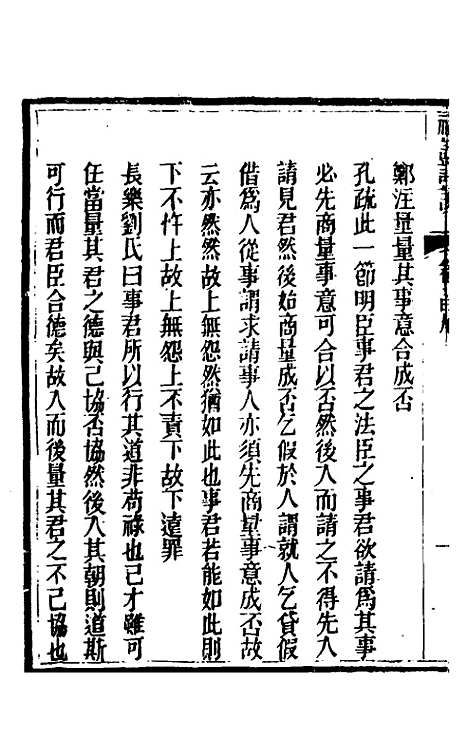 鄭注量量其事意合成否
孔疏此一節明臣事君之法臣之事君欲請爲其事
必先商量事意可合以否然後入而請之不得先入
請見君然後始商量成否乞假於人謂就人乞貸假
借爲人從事謂求請事人亦須先商量事意成否故
云亦然然故上無怨然猶如此也事君若能如此則
下不忤上故上無怨上不責下故下遠罪
長樂劉氏曰事君所以行其道非苟祿也己才雖可
任當量其君之德與己協否協然後入其朝則道斯
可行而君臣合德矣故入而後量其君之不己協也